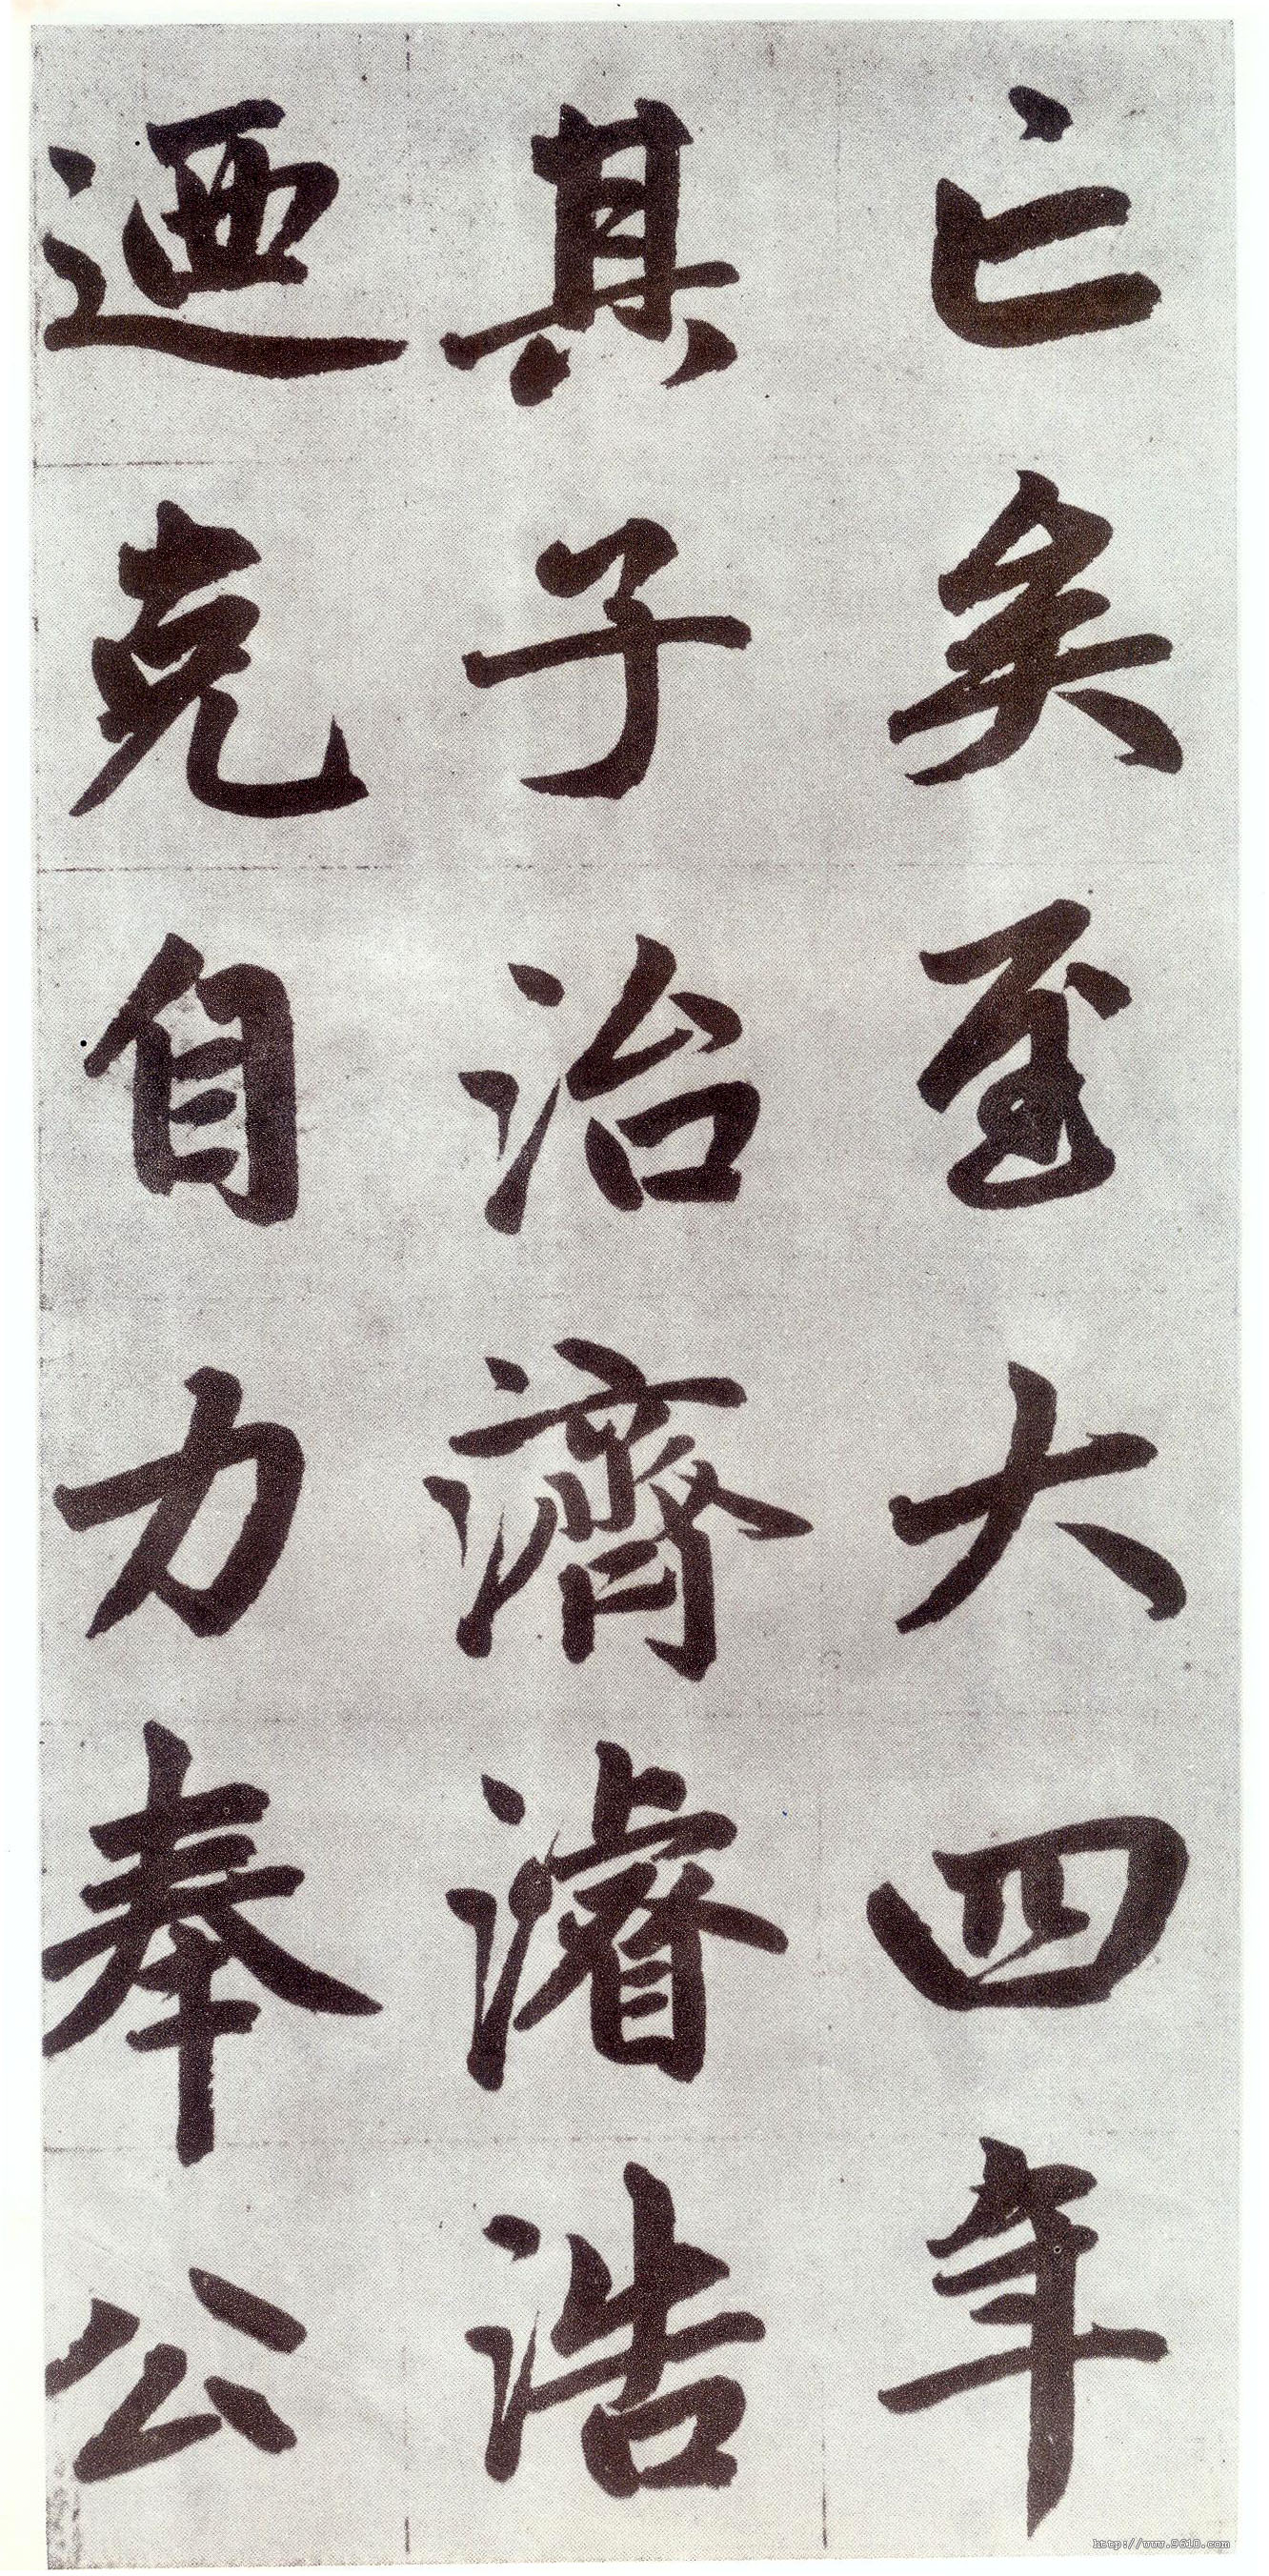 亡矣至大四年
其子治濟濬浩
迺克自力奉公
http://www.9610.com